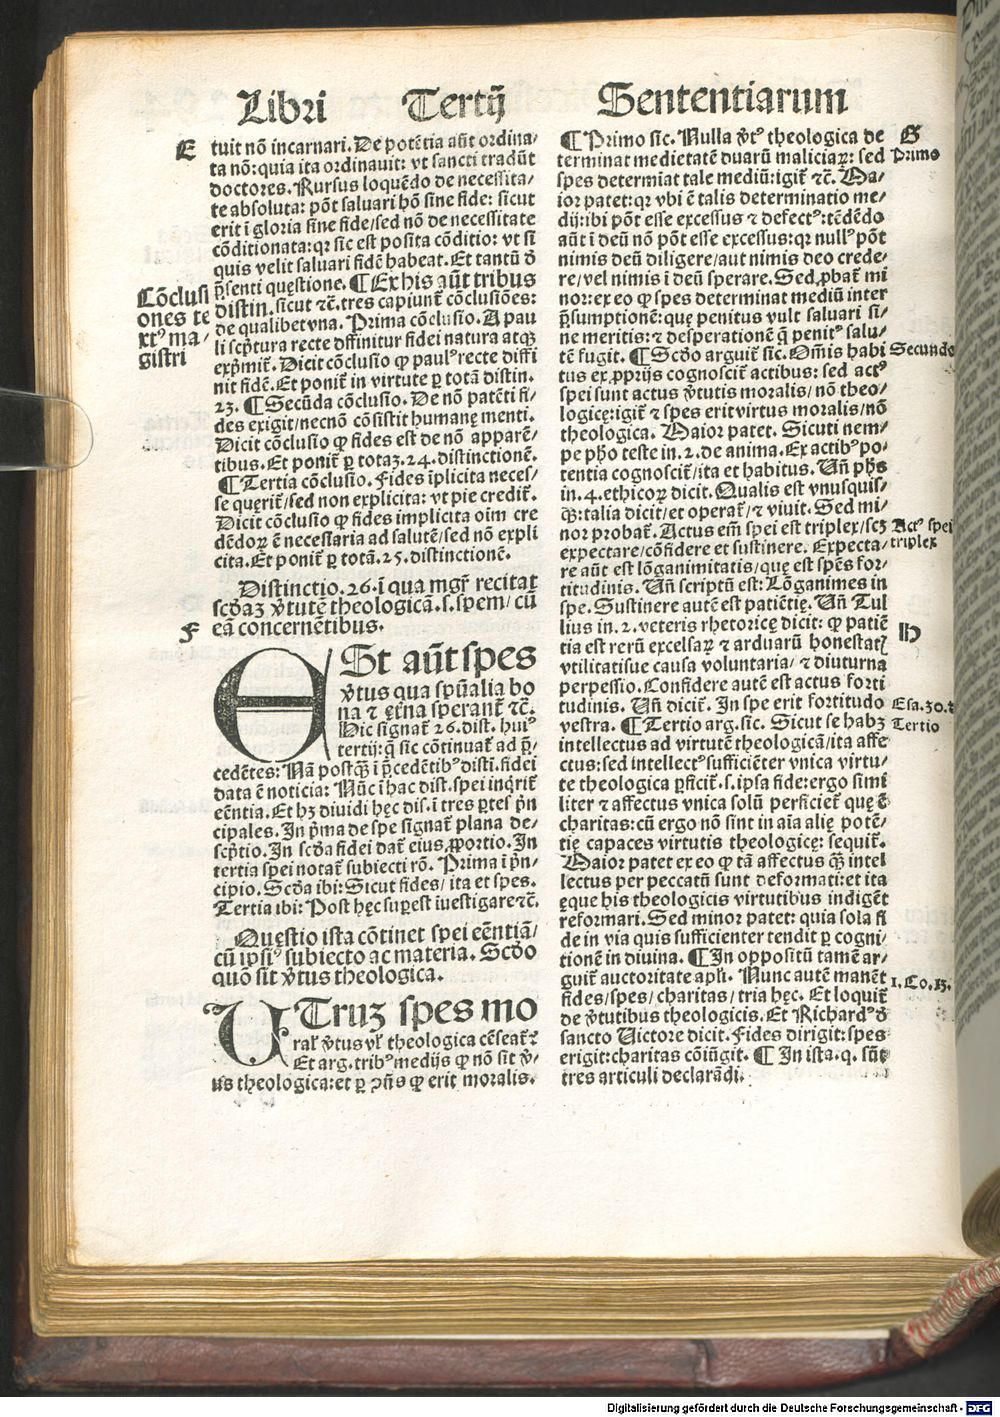 Libri Tertij Sententiarum
E
tuit nō incarnari. De potētia aūt ordina/
ta nō: quia ita ordinauit: vt sancti tradūt
doctores. Rursus loquēdo de necessita/
te absoluta: pōt saluari hō sine fide: sicut
erit ī gloria sine fide/ sed nō de necessitate
cōditionata: qr sic est posita cōditio: vt si
quis velit saluari fidē habeat. Et tantū d̄
p̄senti questione. ¶ Ex his aūt tribus
distin. sicut ⁊c̄. tres capiunt̄ cōclusiōes:
de qualibet vna. Prima cōclusio. A pau
li scp̄tura recte diffinitur fidei natura atqꝫ
exp̄mit̄. Dicit cōclusio ꝙ paulꝰ recte diffi
nit fidē. Et ponit̄ in virtute ꝑ totā distin.
23. ¶ Secūda cōclusio. De nō patēti fi/
des exigit/ necnō cōsistit humanę menti.
Dicit cōclusio ꝙ fides est de nō apparē/
tibus. Et ponit̄ ꝑ totaꝫ. 24. distinctionē.
¶ Tertia cōclusio. Fides īplicita neces/
se querit̄/ sed non explicita: vt pie credit̄.
Dicit cōclusio ꝙ fides implicita oīm cre
dēdoꝝ ē necessaria ad salutē/ sed nō expli
cita. Et ponit̄ ꝑ totā. 25. distinctionē.
Cōclusi
ones te
xtꝰ ma/
gistri
Distinctio. 26. ī qua mgr̄ recitat
scd̄aꝫ v̄tutē theologicā. s. spem/ cū
eā concernētibus.
F
ESt aūt spes
v̄tus qua spūalia bo
na ⁊ ęt̄na sperant̄ ⁊c̄.
Hic signat̄ 26. dist. huiꝰ
tertij: q̄ sic cōtinuat̄ ad p̄/
cedētes: Nā postqꝫ ī p̄cedētibꝰ disti. fidei
data ē noticia: Nūc ī hac dist. spei inqrit̄
eēntia. Et hꝫ diuidi hęc dis. ī tres ꝑtes p̄n
cipales. In p̄ma de spe signat̄ plana de/
scp̄tio. In scd̄a fidei dat̄ eius ꝓportio. In
tertia spei notat̄ subiecti rō. Prima ī p̄n/
cipio. Scd̄a ibi: Sicut fides/ ita et spes.
Tertia ibi: Post hęc suꝑest iuestigare ⁊c̄.
Questio ista cōtinet spei eēntiā/
cū ipsiꝰ subiecto ac materia. Scd̄o
quō sit v̄tus theologica.
UTruꝫ spes mo
ral' v̄tus vl' theologica cēseat̄?
Et arg. tribꝰ medijs ꝙ nō sit v̄/
us theologica: et ꝑ ꝯn̄s ꝙ erit moralis.
¶ Primo sic. Nulla v̄tꝰ theologica de
terminat medietatē duarū maliciaꝝ: sed
spes determīat tale mediū: igit̄ ⁊c̄. Ma/
ior patet: qr vbi ē talis determinatio me/
dij: ibi pōt esse excessus ⁊ defectꝰ: tēdēdo
aūt ī deū nō pōt esse excessus: qr nullꝰ pōt
nimis deū diligere/ aut nimis deo crede/
re/ vel nimis ī deū sperare. Sed ꝓbat̄ mi
nor: ex eo ꝙ spes determinat mediū inter
p̄sumptionē: que penitus vult saluari si/
ne meritis: ⁊ desperationē q̄ penitꝰ salu/
tē fugit. ¶ Scd̄o arguit̄ sic. Om̄is habi
tus ex ꝓprijs cognoscit̄ actibus: sed actꝰ
spei sunt actus v̄tutis moralis/ nō theo/
logicę: igit̄ ⁊ spes erit virtus moralis/ nō
theologica. Maior patet. Sicuti nem/
pe pho teste in. 2. de anima. Ex actibꝰ po/
tentia cognoscit̄/ ita et habitus. Un̄ phs
in. 4. ethicoꝝ dicit. Qualis est vnusquis/
qꝫ: talia dicit/ et operat̄/ ⁊ viuit. Sed mi/
nor probat̄. Actus em̄ spei est triplex/ scꝫ
expectare/ cōfidere et sustinere. Expecta/
re aūt est lōganimitatis/ quę est spēs for/
titudinis. Un̄ scriptū est: Lōganimes in
spe. Sustinere autē est patiētię. Un̄ Tul
lius in. 2. veteris rhetoricę dicit: ꝙ patiē
tia est rerū excelsaꝝ ⁊ arduarū honestat̄
vtilitatisue causa voluntaria/ ⁊ diuturna
perpessio. Confidere autē est actus forti
tudinis. Un̄ dicit̄. In spe erit fortitudo
vestra. ¶ Tertio arg. sic. Sicut se habꝫ
intellectus ad virtutē theologicā/ ita affe
ctus: sed intellectꝰ sufficiēter vnica virtu/
te theologica ꝑficit̄. s. ipsa fide: ergo simi
liter ⁊ affectus vnica solū perficiet̄ quę ē
charitas: cū ergo nō sint in aīa alię potē/
tię capaces virtutis theologicę: sequit̄.
Maior patet ex eo ꝙ tā affectus qꝫ intel
lectus per peccatū sunt deformati: et ita
ęque his theologicis virtutibus indigēt
reformari. Sed minor patet: quia sola fi
de in via quis sufficienter tendit ꝑ cogni/
tionē in diuina. ¶ In oppositū tamē ar/
guit̄ auctoritate apli. Nunc autē manēt
fides/ spes/ charitas/ tria hęc. Et loquit̄
de v̄tutibus theologicis. Et Richardꝰ d̄
sancto Uictore dicit. Fides dirigit: spes
erigit: charitas cōiūgit. ¶ In ista. q. sūt
tres articuli declarādi.
G
Primo
Secundo
Actꝰ spei
triplex
H
Esa. 30. t
Tertio
1. Co. 13.
Digitalisierung gefördert durch die Deutsche Forschungsgemeinschaft - DFG